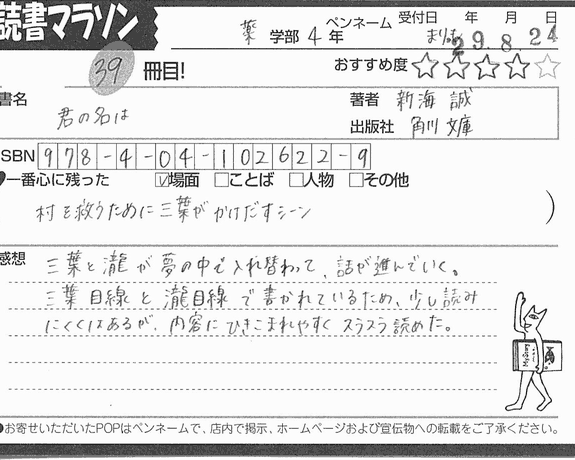 読書マラソン
薬 学部 4 年 ペンネーム まりも 受付日 年 月 日
29.8.24
39 冊目!
おすすめ度 ☆☆☆☆☆
書名 君の名は
著者 新海 誠
出版社 角川文庫
ISBN 978-4-04-102622-9
一番心に残った ☑場面 □ことば □人物 □その他
村を救うために三葉がかけだすシーン )
感想
三葉と瀧が夢の中で入れ替わって、話が進んでいく。
三葉目線と瀧目線で書かれているため、少し読み
にくくはあるが、内容にひきこまれやすくスラスラ読めた。
●お寄せいただいたPOPはペンネームで、店内で掲示、ホームページおよび宣伝物への転載をご了承ください。